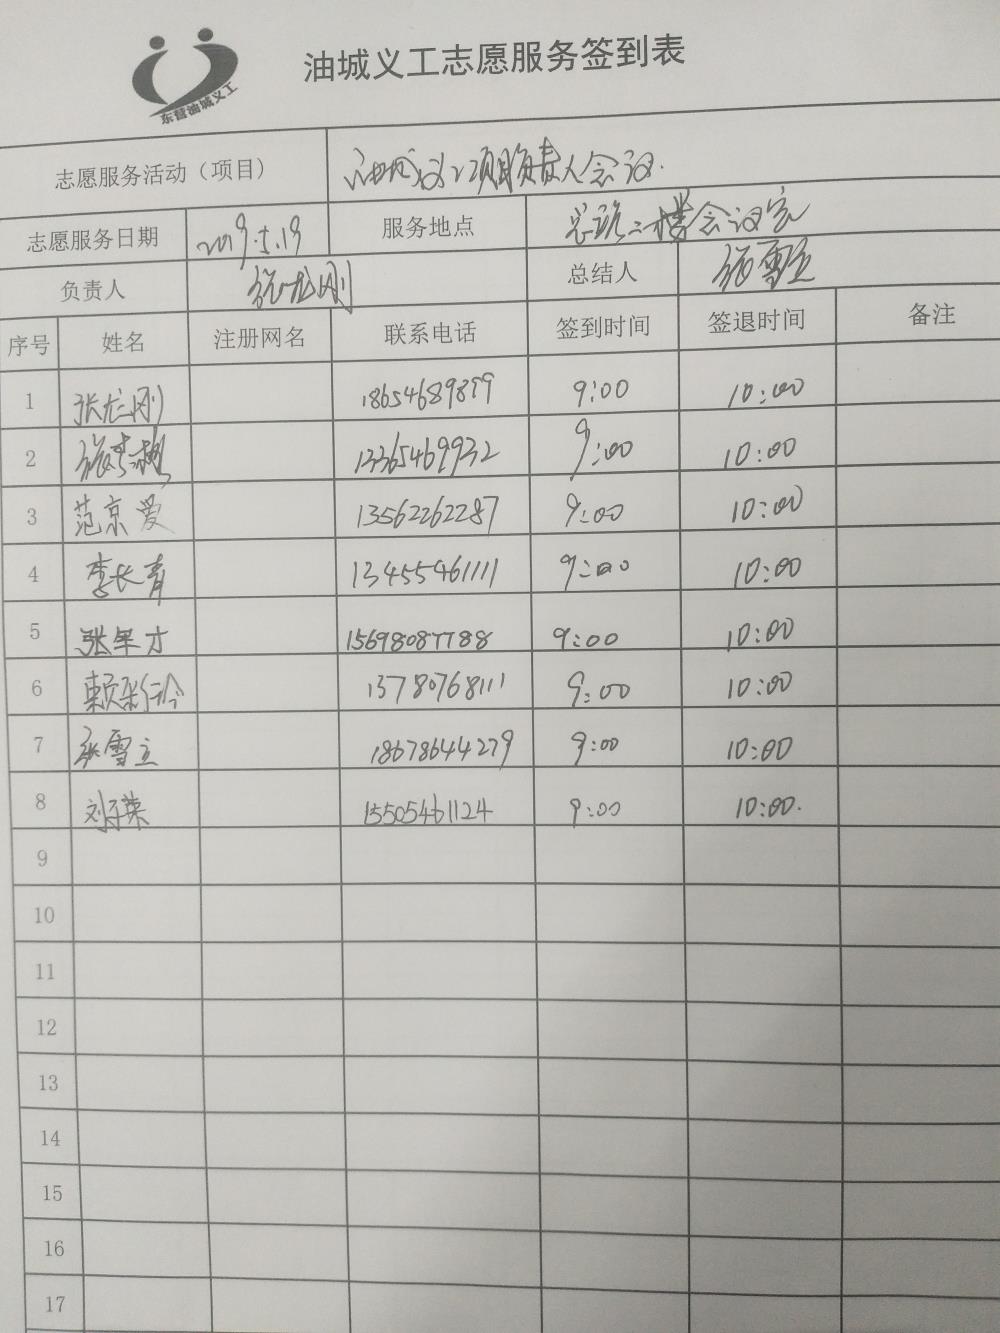 东营油城义工
油城义工志愿服务签到表
志愿服务活动（项目） 油城义工项目负责人会议.
志愿服务日期 2019.5.19 服务地点 二楼会议室
负责人 张龙刚 总结人 张雪立
序号 姓名 注册网名 联系电话 签到时间 签退时间 备注
1 张龙刚 18654689899 9:00 10:00
2 13365469932 9:00 10:00
3 范京爱 13562262287 9:00 10:00
4 李长青 13455461111 9:00 10:00
5 张军才 15698087788 9:00 10:00
6 13780768111 9:00 10:00
7 张雪立 18678644279 9:00 10:00
8 15505461124 9:00 10:00.
9
10
11
12
13
14
15
16
17